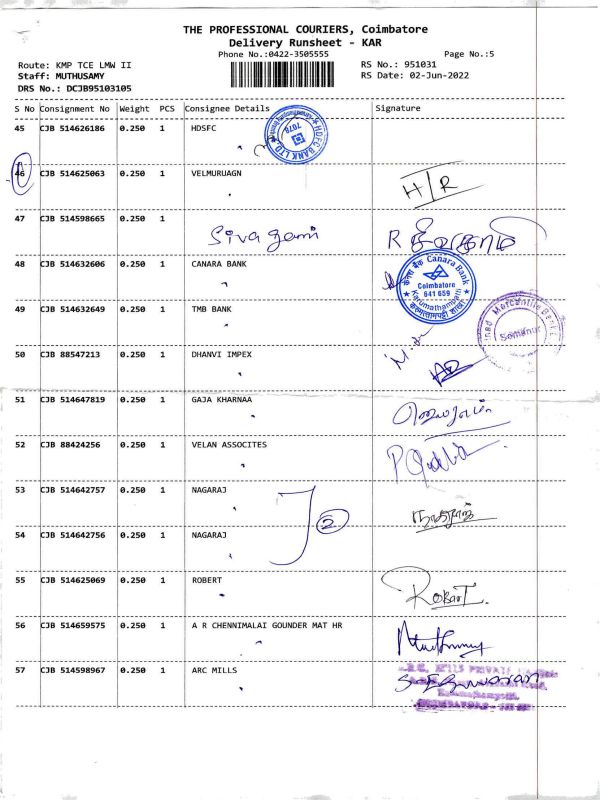 THE PROFESSIONAL COURIERS, Coimbatore
Delivery Runsheet - KAR
Phone No.:0422-3505555
Page No.:5
Route: KMP TCE LMW II
RS No.: 951031
Staff: MUTHUSAMY
RS Date: 02-Jun-2022
DRS No.: DCJB95103105
S No Consignment No Weight PCS Consignee Details Signature
45 CJB 514626186 0.250 1 HDSFC
HDFC BANK LTD.
7078
46 CJB 514625063 0.250 1 VELMURUAGN
H/R
47 CJB 514598665 0.250 1
Sivagami
R சிவகாமி
48 CJB 514632606 0.250 1 CANARA BANK
केनरा बैंक Canara Bank
Coimbatore
641 659
Karumathampatti
49 CJB 514632649 0.250 1 TMB BANK
Mercantile Bank
Somanur
50 CJB 88547213 0.250 1 DHANVI IMPEX
51 CJB 514647819 0.250 1 GAJA KHARNAA
52 CJB 88424256 0.250 1 VELAN ASSOCITES
53 CJB 514642757 0.250 1 NAGARAJ
2
நாகராஜ்
54 CJB 514642756 0.250 1 NAGARAJ
55 CJB 514625069 0.250 1 ROBERT
RobarT.
56 CJB 514659575 0.250 1 A R CHENNIMALAI GOUNDER MAT HR
57 CJB 514598967 0.250 1 ARC MILLS
MILLS PRIVATE